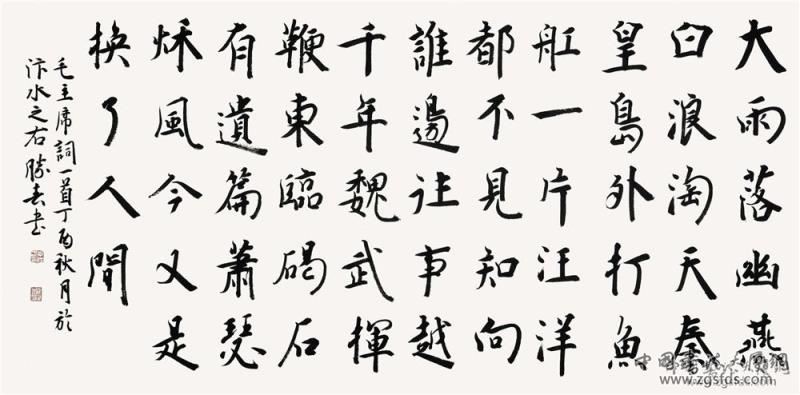 大雨落幽燕
白浪淘天秦
皇島外打魚
舡一片汪洋
都不見知向
誰邊往事越
千年魏武揮
鞭東臨碣石
有遺篇蕭瑟
秌風今又是
換了人間
毛主席詞一首丁酉秋月於
汴水之右勝春書
www.zgsfds.com